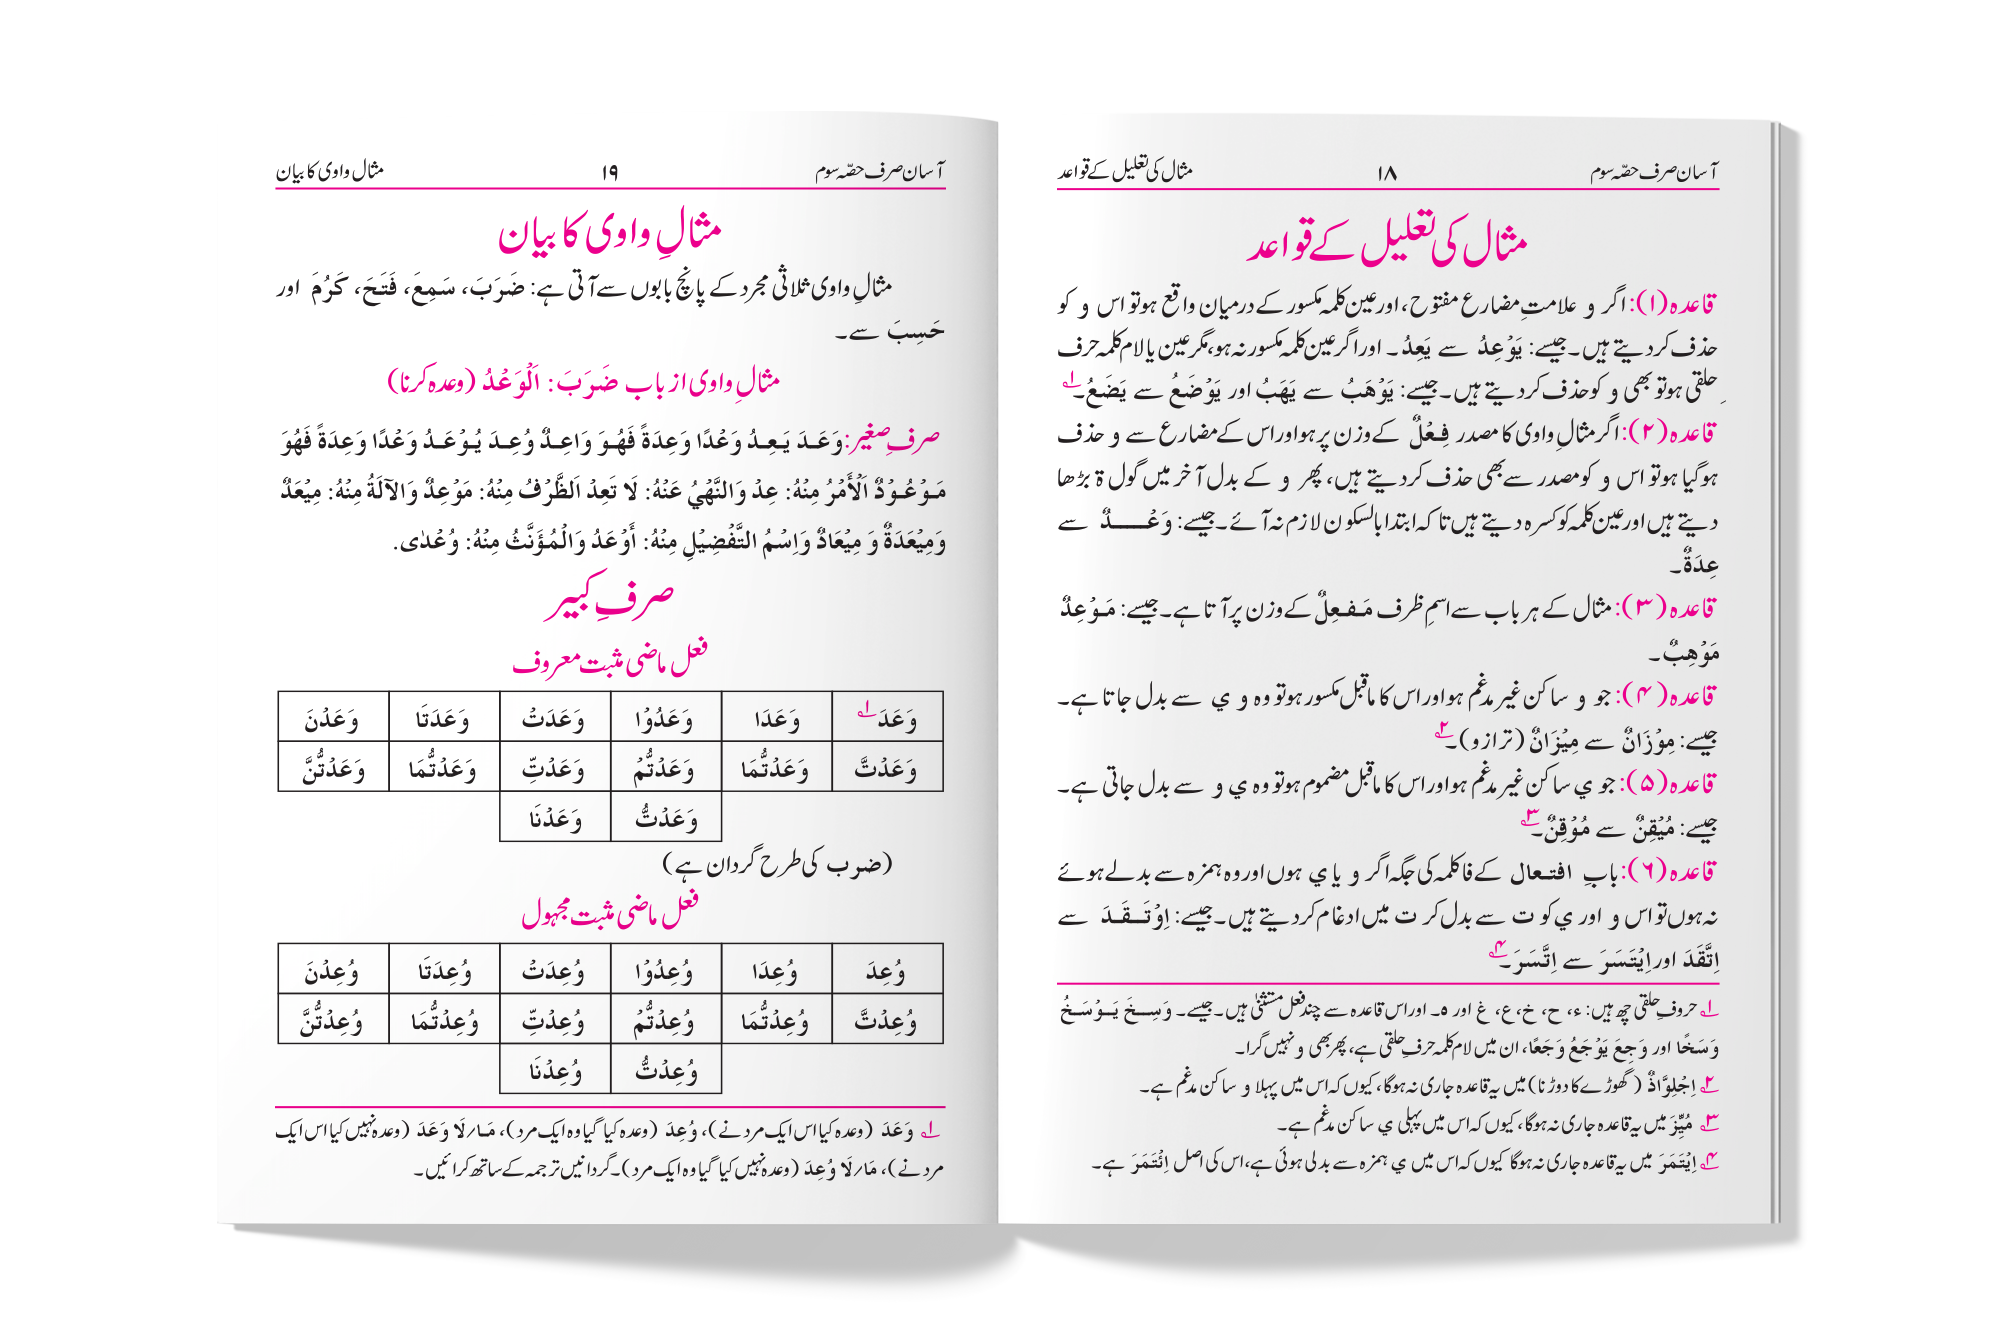 آسان صرف حصّہ سوم ۱۸ مثال کی تعلیل کے قواعد
مثال کی تعلیل کے قواعد
قاعدہ (۱): اگر و علامتِ مضارع مفتوح، اور عین کلمہ مکسور کے درمیان واقع ہوتو اس و کو
حذف کردیتے ہیں۔ جیسے: یَوْعِدُ سے یَعِدُ۔ اور اگر عین کلمہ مکسور نہ ہو، مگر عین یا لام کلمہ حرف
حلقی ہوتو بھی و کو حذف کردیتے ہیں۔ جیسے: یَوْهَبُ سے یَهَبُ اور یَوْضَعُ سے یَضَعُ۔ ۱؎
قاعدہ (۲): اگر مثالِ واوی کا مصدر فِعْلٌ کے وزن پر ہو اور اس کے مضارع سے و حذف
ہوگیا ہوتو اس و کو مصدر سے بھی حذف کردیتے ہیں، پھر و کے بدل آخر میں گول ة بڑھا
دیتے ہیں اور عین کلمہ کو کسرہ دیتے ہیں تاکہ ابتدا بالسکون لازم نہ آئے۔ جیسے: وَعْدٌ سے
عِدَةٌ۔
قاعدہ (۳): مثال کے ہر باب سے اسمِ ظرف مَفْعِلٌ کے وزن پر آتا ہے۔ جیسے: مَوْعِدٌ
مَوْهِبٌ۔
قاعدہ (۴): جو و ساکن غیر مدغم ہو اور اس کا ماقبل مکسور ہوتو وہ و ي سے بدل جاتا ہے۔
جیسے: مِوْزَانٌ سے مِیْزَانٌ (ترازو)۔ ۲؎
قاعدہ (۵): جو ي ساکن غیر مدغم ہو اور اس کا ماقبل مضموم ہوتو وہ ي و سے بدل جاتی ہے۔
جیسے: مُیْقِنٌ سے مُوْقِنٌ۔ ۳؎
قاعدہ (۶): بابِ افتعال کے فا کلمہ کی جگہ اگر و یا ي ہوں اور وہ ہمزہ سے بدلے ہوئے
نہ ہوں تو اس و اور ي کو ت سے بدل کر ت میں ادغام کردیتے ہیں۔ جیسے: اِوْتَقَدَ سے
اِتَّقَدَ اور اِیْتَسَرَ سے اِتَّسَرَ۔ ۴؎
۱؎ حروفِ حلقی چھ ہیں: ء، ح، خ، ع، غ اور ه۔ اور اس قاعدہ سے چند فعل مستثنیٰ ہیں۔ جیسے۔ وَسِخَ یَوْسَخُ
وَسَخًا اور وَجِعَ یَوْجَعُ وَجَعًا، ان میں لام کلمہ حرفِ حلقی ہے، پھر بھی و نہیں گرا۔
۲؎ اِجْلِوَّاذٌ (گھوڑے کا دوڑنا) میں یہ قاعدہ جاری نہ ہوگا، کیوں کہ اس میں پہلا و ساکن مدغم ہے۔
۳؎ مُیِّزَ میں یہ قاعدہ جاری نہ ہوگا، کیوں کہ اس میں پہلی ي ساکن مدغم ہے۔
۴؎ اِیْتَمَرَ میں یہ قاعدہ جاری نہ ہوگا کیوں کہ اس میں ي ہمزہ سے بدلی ہوئی ہے، اس کی اصل اِئْتَمَرَ ہے۔
آسان صرف حصّہ سوم ۱۹ مثال واوی کا بیان
مثالِ واوی کا بیان
مثالِ واوی ثلاثی مجرد کے پانچ بابوں سے آتی ہے: ضَرَبَ، سَمِعَ، فَتَحَ، کَرُمَ اور
حَسِبَ سے۔
مثالِ واوی از باب ضَرَبَ: اَلْوَعْدُ (وعدہ کرنا)
صرفِ صغیر: وَعَدَ یَعِدُ وَعْدًا وَعِدَةً فَهُوَ وَاعِدٌ وُعِدَ یُوْعَدُ وَعْدًا وَعِدَةً فَهُوَ
مَوْعُوْدٌ اَلْأَمْرُ مِنْهُ: عِدْ وَالنَّهْيُ عَنْهُ: لَا تَعِدْ اَلظَّرْفُ مِنْهُ: مَوْعِدٌ وَالآلَةُ مِنْهُ: مِیْعَدٌ
وَمِیْعَدَةٌ وَ مِیْعَادٌ وَاِسْمُ التَّفْضِیْلِ مِنْهُ: أَوْعَدُ وَالْمُؤَنَّثُ مِنْهُ: وُعْدٰی.
صرفِ کبیر
فعل ماضی مثبت معروف
وَعَدَ ۱؎ وَعَدَا وَعَدُوْا وَعَدَتْ وَعَدَتَا وَعَدْنَ
وَعَدْتَّ وَعَدْتُّمَا وَعَدْتُّمْ وَعَدْتِّ وَعَدْتُّمَا وَعَدْتُّنَّ
وَعَدْتُّ وَعَدْنَا
(ضرب کی طرح گردان ہے)
فعل ماضی مثبت مجہول
وُعِدَ وُعِدَا وُعِدُوْا وُعِدَتْ وُعِدَتَا وُعِدْنَ
وُعِدْتَّ وُعِدْتُّمَا وُعِدْتُّمْ وُعِدْتِّ وُعِدْتُّمَا وُعِدْتُّنَّ
وُعِدْتُّ وُعِدْنَا
۱؎ وَعَدَ (وعدہ کیا اس ایک مرد نے)، وُعِدَ (وعدہ کیا گیا وہ ایک مرد)، مَا/لَا وَعَدَ (وعدہ نہیں کیا اس ایک
مرد نے)، مَا/لَا وُعِدَ (وعدہ نہیں کیا گیا وہ ایک مرد)۔ گردانیں ترجمہ کے ساتھ کرائیں۔